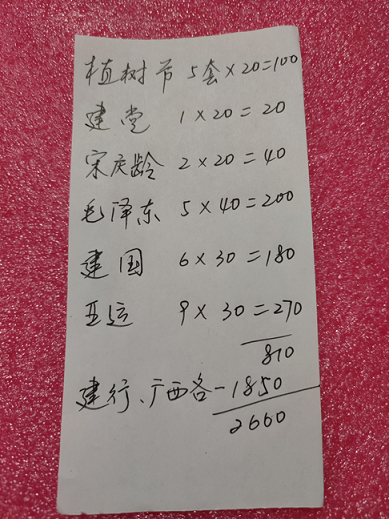 植树节 5套×20=100
建党 1×20=20
宋庆龄 2×20=40
毛泽东 5×40=200
建国 6×30=180
亚运 9×30=270
810
建行、广西各一1850
2660